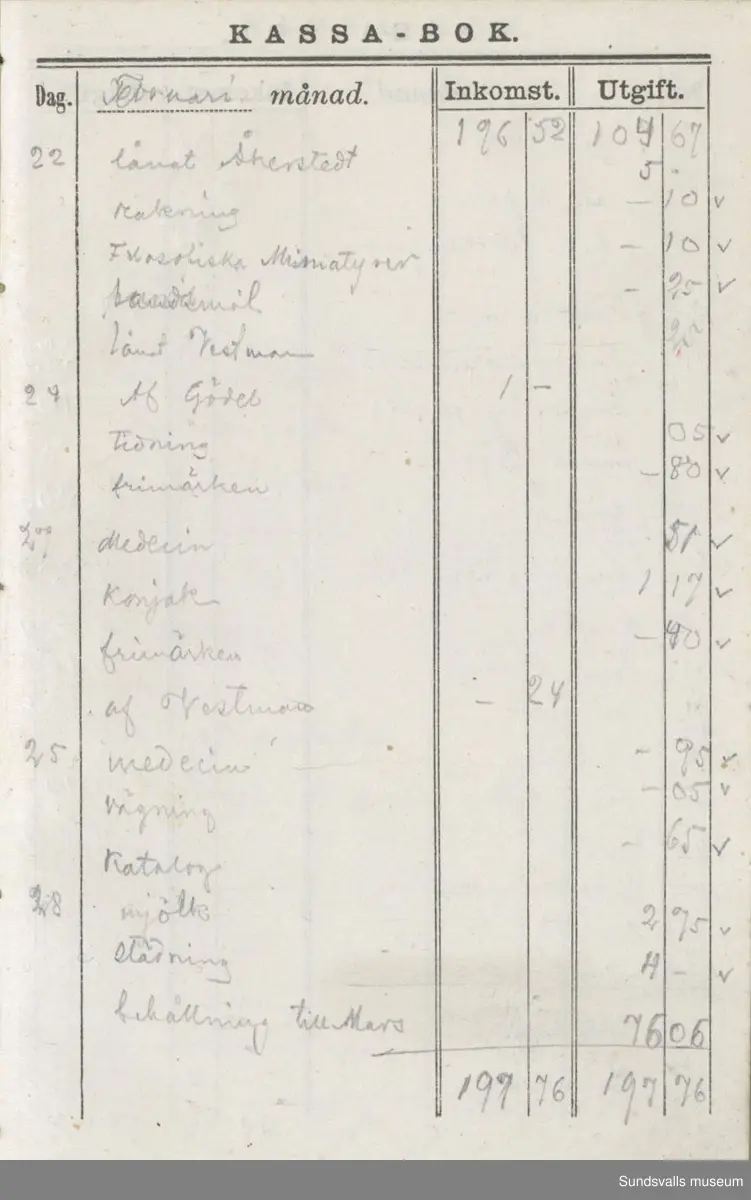 KASSA-BOK.
Dag. Februari månad. Inkomst. Utgift.
196 52 104 67
22 lånat Åkerstedt 5 -
rakning - 10 v
Filosofiska Miniatyrer - 10 v
- 25 v
lånat Vestman 25
24 Af Gödel 1 -
tidning 05 v
frimärken - 80 v
27 Medecin 51 v
Konjak 1 17 v
frimärken - 40 v
af Vestman - 24
25 medecin - 95 v
vägning - 05 v
Katalog - 65 v
28 mjölk 2 95 v
städning 4 - v
behållning till Mars 76 06
197 76 197 76
Sundsvalls museum